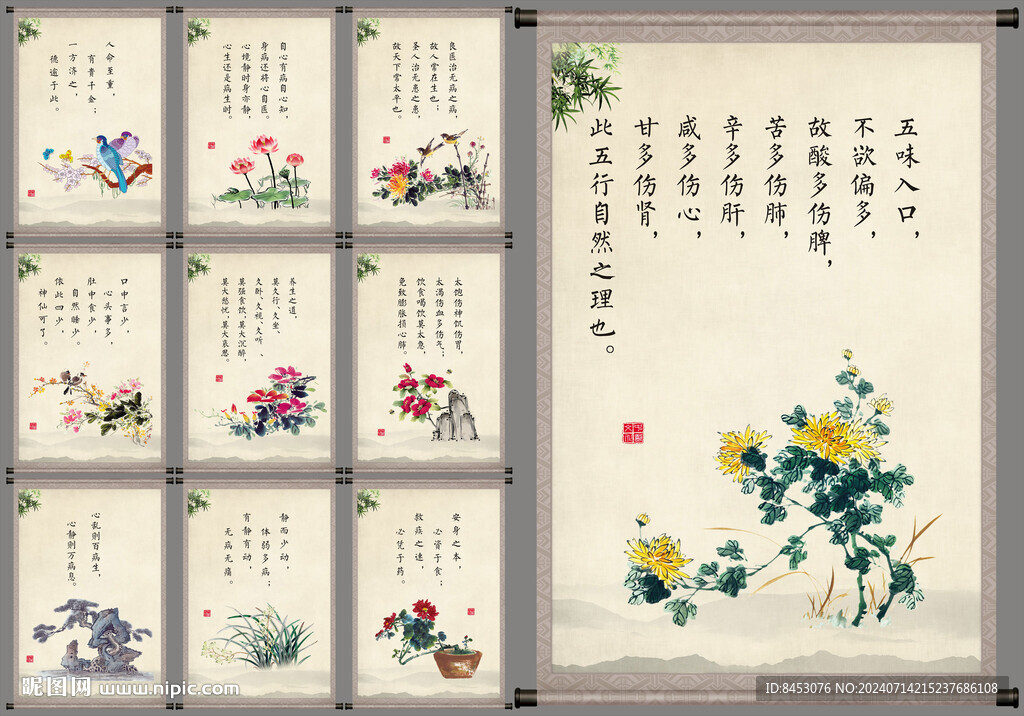 人命至重，
有贵千金；
一方济之，
德逾于此。
自心有病自心知，
身病还将心自医。
心境静时身亦静，
心生还是病生时。
良医治无病之病，
故人常在生也；
圣人治无患之患，
故天下常太平也。
口中言少，
心头事多，
肚中食少，
自然睡少。
依此四少，
神仙可了。
养生之道，
莫久行、久坐、
久卧、久视、久听、
莫强食饮，莫大沉醉，
莫大愁忧，莫大哀思。
太饱伤神饥伤胃，
太渴伤血多伤气；
饥食渴饮莫太急，
免致膨胀损心肺。
心乱则百病生，
心静则万病息。
静而少动，
体弱多病；
有静有动，
无病无痛。
安身之本，
必资于食；
救疾之速，
必凭于药。
五味入口，
不欲偏多，
故酸多伤脾，
苦多伤肺，
辛多伤肝，
咸多伤心，
甘多伤肾，
此五行自然之理也。
昵图网 www.nipic.com
ID:8453076 NO:20240714215237686108